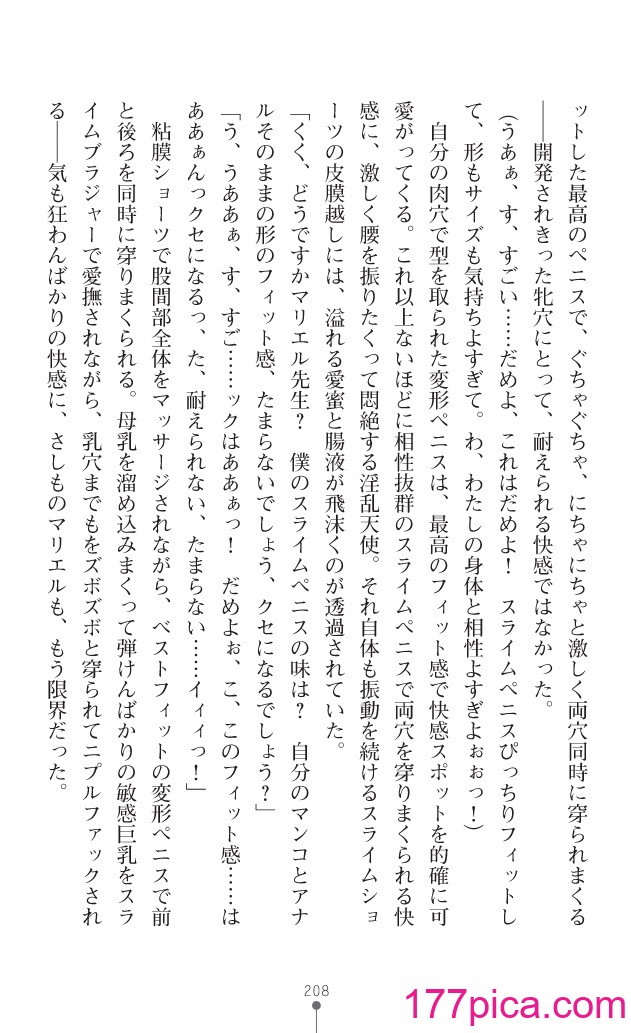 ットした最高のペニスで、ぐちゃぐちゃ、にちゃにちゃと激しく両穴同時に穿られまくる
――開発されきった牝穴にとって、耐えられる快感ではなかった。
(うあぁ、す、すごい……だめよ、これはだめよ！　スライムペニスぴっちりフィットし
て、形もサイズも気持ちよすぎて。わ、わたしの身体と相性よすぎよぉぉっ！)
自分の肉穴で型を取られた変形ペニスは、最高のフィット感で快感スポットを的確に可
愛がってくる。これ以上ないほどに相性抜群のスライムペニスで両穴を穿りまくられる快
感に、激しく腰を振りたくって悶絶する淫乱天使。それ自体も振動を続けるスライムショ
ーツの皮膜越しには、溢れる愛蜜と腸液が飛沫くのが透過されていた。
「くく、どうですかマリエル先生？　僕のスライムペニスの味は？　自分のマンコとアナ
ルそのままの形のフィット感、たまらないでしょう、クセになるでしょう？」
「う、うああぁ、す、すご……ックはああぁっ！　だめよぉ、こ、このフィット感……は
ああぁんっクセになるっ、た、耐えられない、たまらない……イィィっ！」
粘膜ショーツで股間部全体をマッサージされながら、ベストフィットの変形ペニスで前
と後ろを同時に穿りまくられる。母乳を溜め込みまくって弾けんばかりの敏感巨乳をスラ
イムブラジャーで愛撫されながら、乳穴までもをズボズボと穿られてニプルファックされ
る――気も狂わんばかりの快感に、さしものマリエルも、もう限界だった。
208
177pica.com